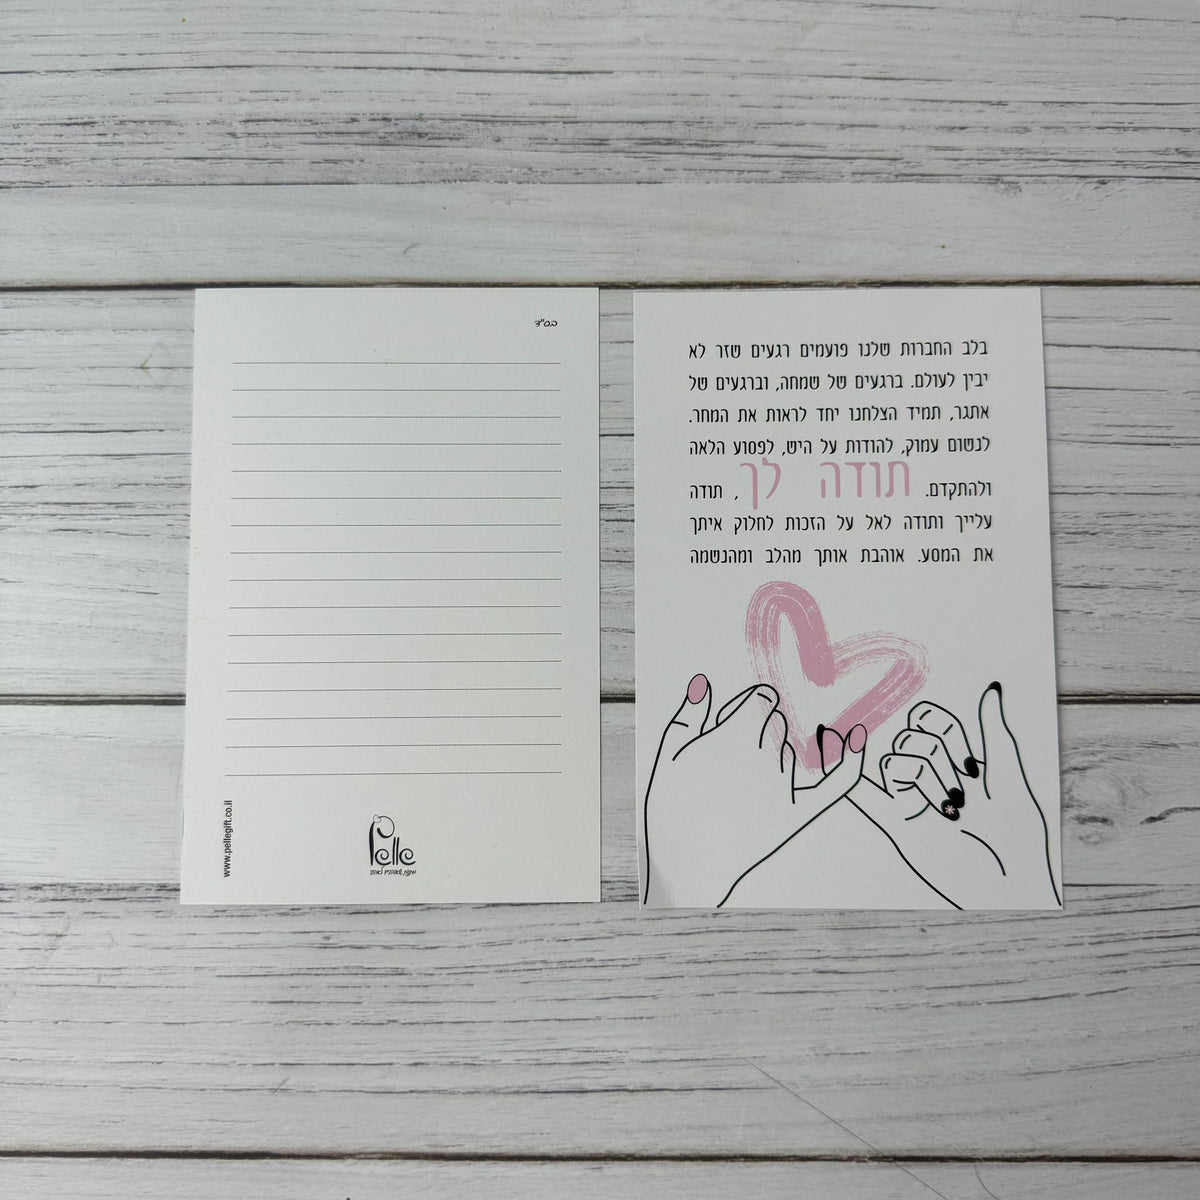 בס"ד
www.pellegift.co.il
Pelle
בלב החברות שלנו פועמים רגעים שזר לא
יבין לעולם. ברגעים של שמחה, וברגעים של
אתגר, תמיד הצלחנו יחד לראות את המחר.
לנשום עמוק, להודות על היש, לפסוע הלאה
ולהתקדם. תודה לך, תודה
עלייך ותודה לאל על הזכות לחלוק איתך
את המסע. אוהבת אותך מהלב ומהנשמה